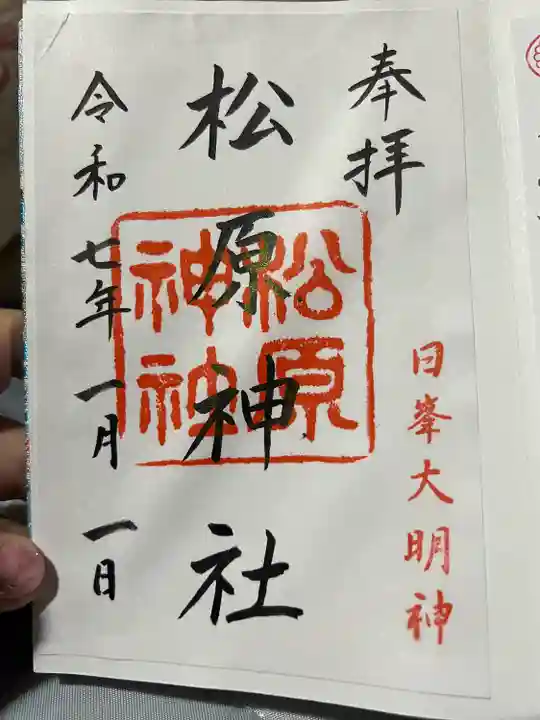 奉拝
日峯大明神
松原神社
松原神社
令和七年一月一日